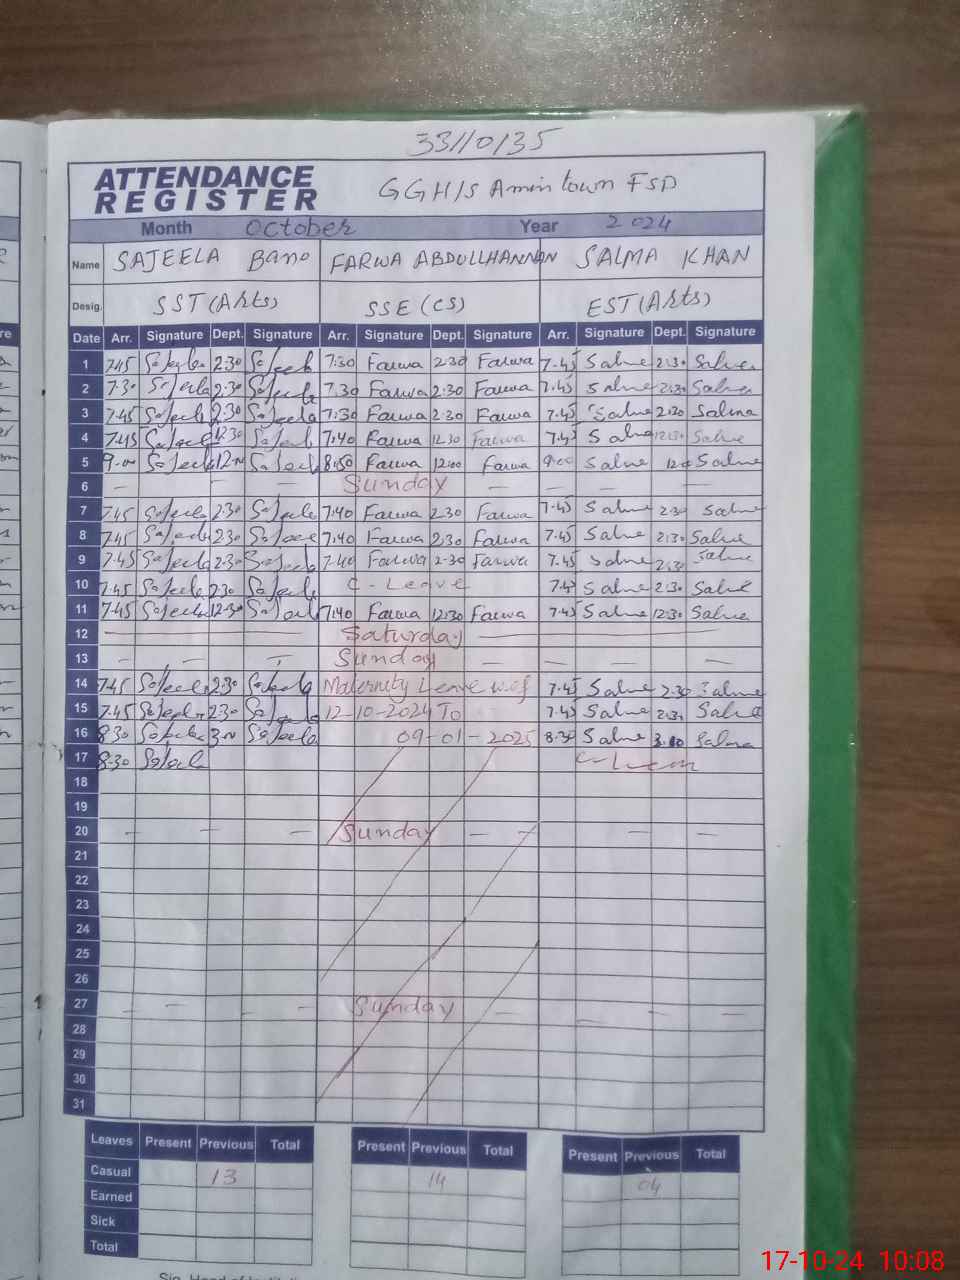 33110135
ATTENDANCE
REGISTER
GGH/S Amin town FSD
Month October Year 2024
Name SAJEELA Bano FARWA ABDULLHANNAN SALMA KHAN
Desig. SST (Arts) SSE (CS) EST (Arts)
Date Arr. Signature Dept. Signature Arr. Signature Dept. Signature Arr. Signature Dept. Signature
1 7.45 Sajeela 2.30 Sajeela 7:30 Farwa 2.30 Farwa 7.45 Salma 2:30 Salma
2 7.30 Sajeela 2.30 Sajeela 7.30 Farwa 2.30 Farwa 7.45 Salma 2:30 Salma
3 7.45 Sajeela 2.30 Sajeela 7:30 Farwa 2.30 Farwa 7.45 Salma 2:30 Salma
4 7.45 Sajeela 12.30 Sajeela 7:40 Farwa 12.30 Farwa 7.45 Salma 12:30 Salma
5 9.00 Sajeela 12.00 Sajeela 8:50 Farwa 12:00 Farwa 9:00 Salma 12:00 Salma
6 — — — Sunday — — — —
7 7.45 Sajeela 2.30 Sajeela 7:40 Farwa 2.30 Farwa 7.45 Salma 2.30 Salma
8 7.45 Sajeela 2.30 Sajeela 7:40 Farwa 2:30 Farwa 7.45 Salma 2:30 Salma
9 7.45 Sajeela 2.30 Sajeela 7.40 Farwa 2.30 Farwa 7.45 Salma 2.30 Salma
10 7.45 Sajeela 2.30 Sajeela C - Leave 7.45 Salma 2.30 Salma
11 7.45 Sajeela 12.30 Sajeela 7:40 Farwa 12:30 Farwa 7.45 Salma 12:30 Salma
12 Saturday
13 — — — Sunday — — — —
14 7.45 Sajeela 2.30 Sajeela Maternity Leave w.e.f 7.45 Salma 2.30 Salma
15 7.45 Sajeela 2.30 Sajeela 12-10-2024 To 7.45 Salma 2:30 Salma
16 8.30 Sajeela 3.00 Sajeela 09-01-2025 8.30 Salma 3.00 Salma
17 8.30 Sajeela
18
19
20 — — — Sunday — — — —
21
22
23
24
25
26
27 — — — — Sunday — — — —
28
29
30
31
Leaves Present Previous Total Present Previous Total Present Previous Total
Casual 13 14 04
Earned
Sick
Total
17-10-24 10:08